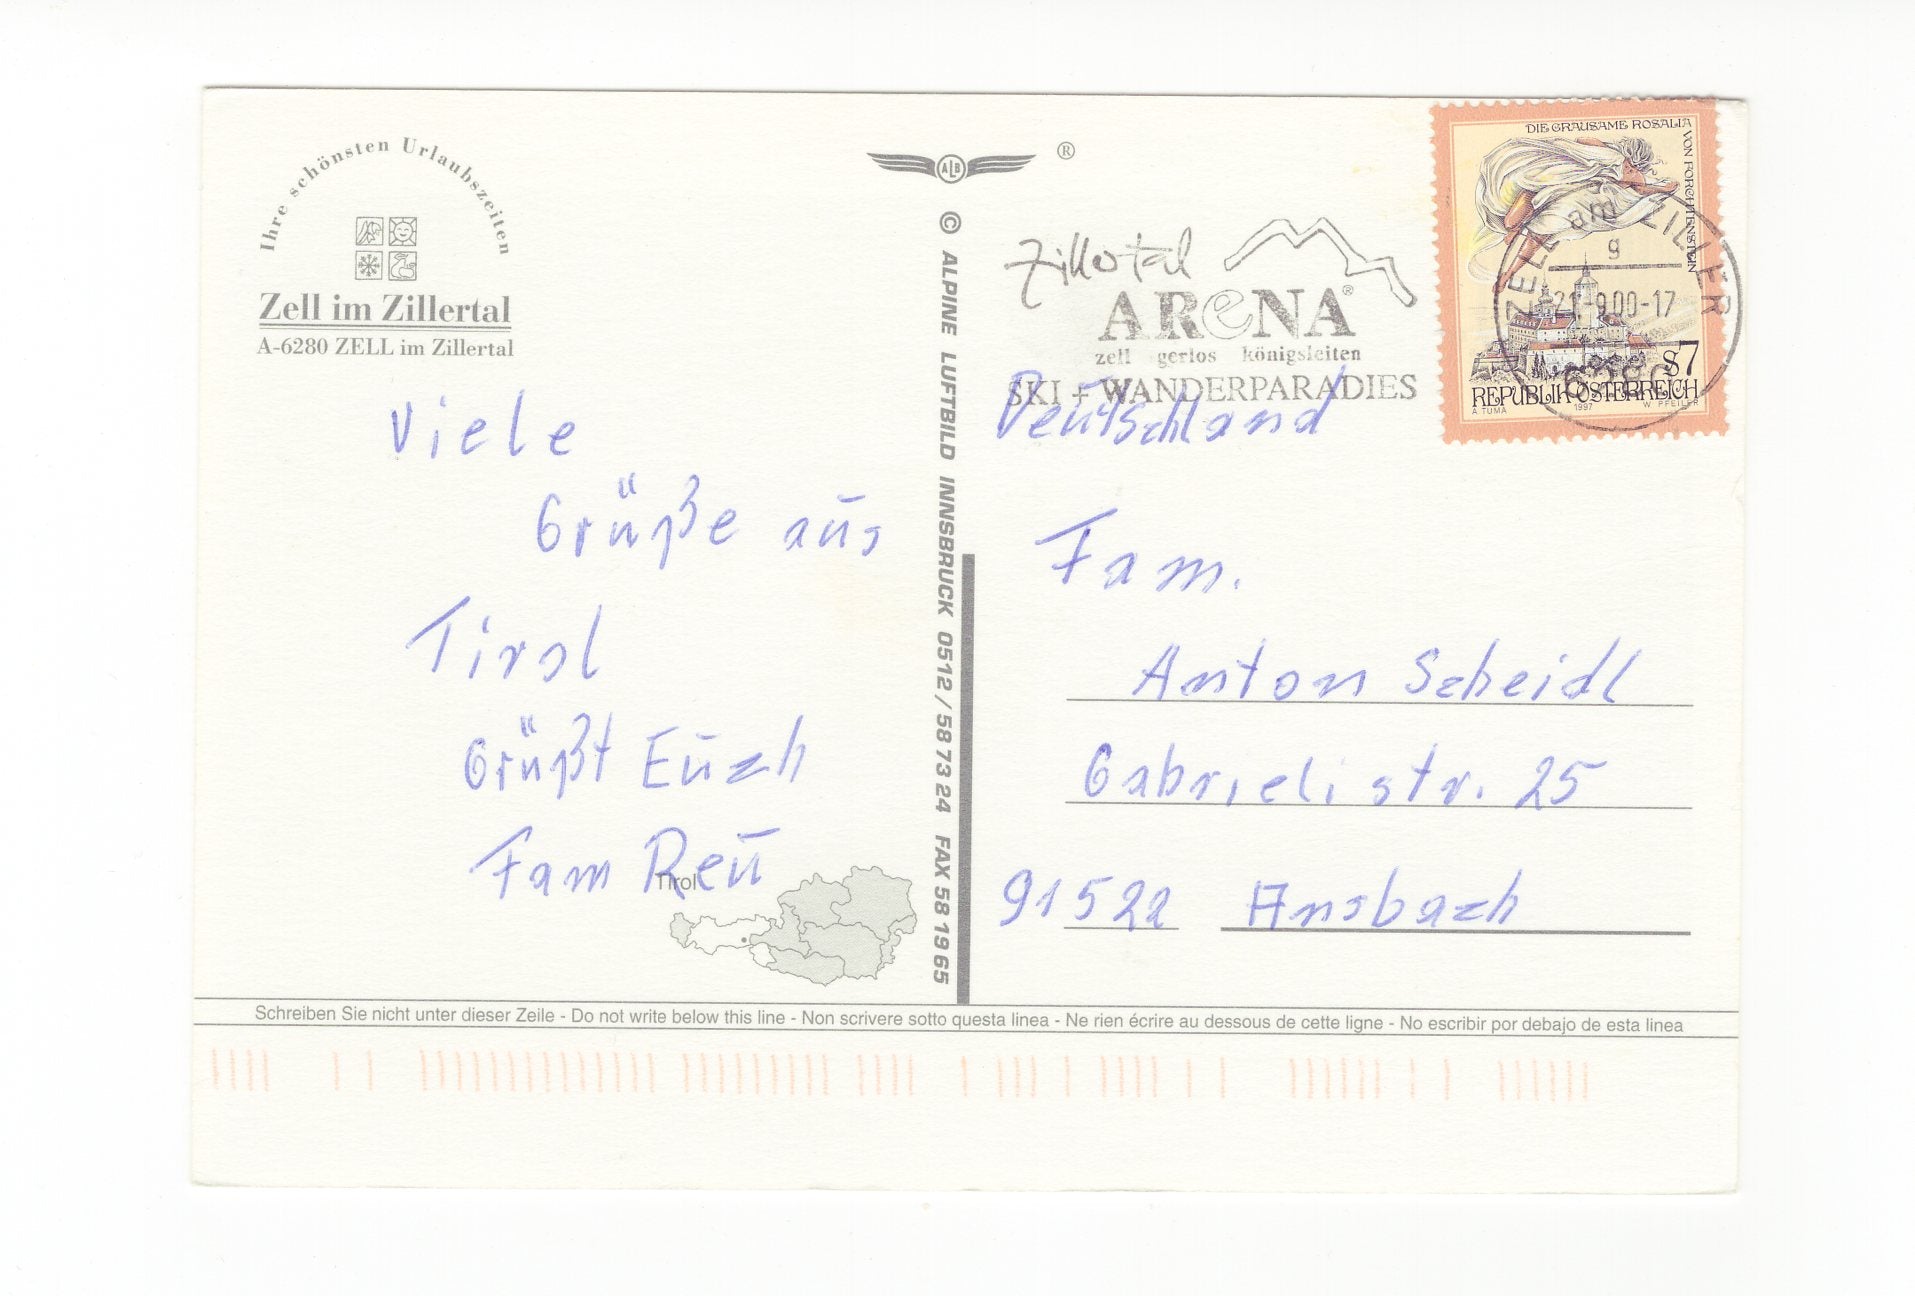 Ihre schönsten Urlaubszeiten
Zell im Zillertal
A-6280 ZELL im Zillertal
Viele
Grüße aus
Tirol
Grüßt Euch
Fam Reu
Tirol
ALB ®
© ALPINE LUFTBILD INNSBRUCK 0512 / 58 73 24 FAX 58 19 65
Zillertal
ARENA®
zell gerlos königsleiten
SKI + WANDERPARADIES
DIE GRAUSAME ROSALIA
VON FORCHTENSTEIN
S7
REPUBLIK ÖSTERREICH
A TUMA 1997 W PFEILER
ZELL am ZILLER
g
21-9.00-17
6280
Deutschland
Fam.
Anton Scheidl
Gabrielistr. 25
91522 Ansbach
Schreiben Sie nicht unter dieser Zeile - Do not write below this line - Non scrivere sotto questa linea - Ne rien écrire au dessous de cette ligne - No escribir por debajo de esta linea